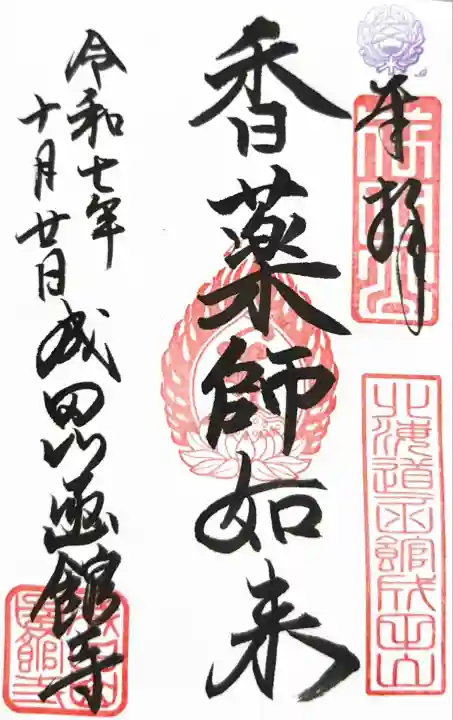 奉拝
北海道函館成田山
香薬師如来
令和七年
十月廿日
成田山函館寺